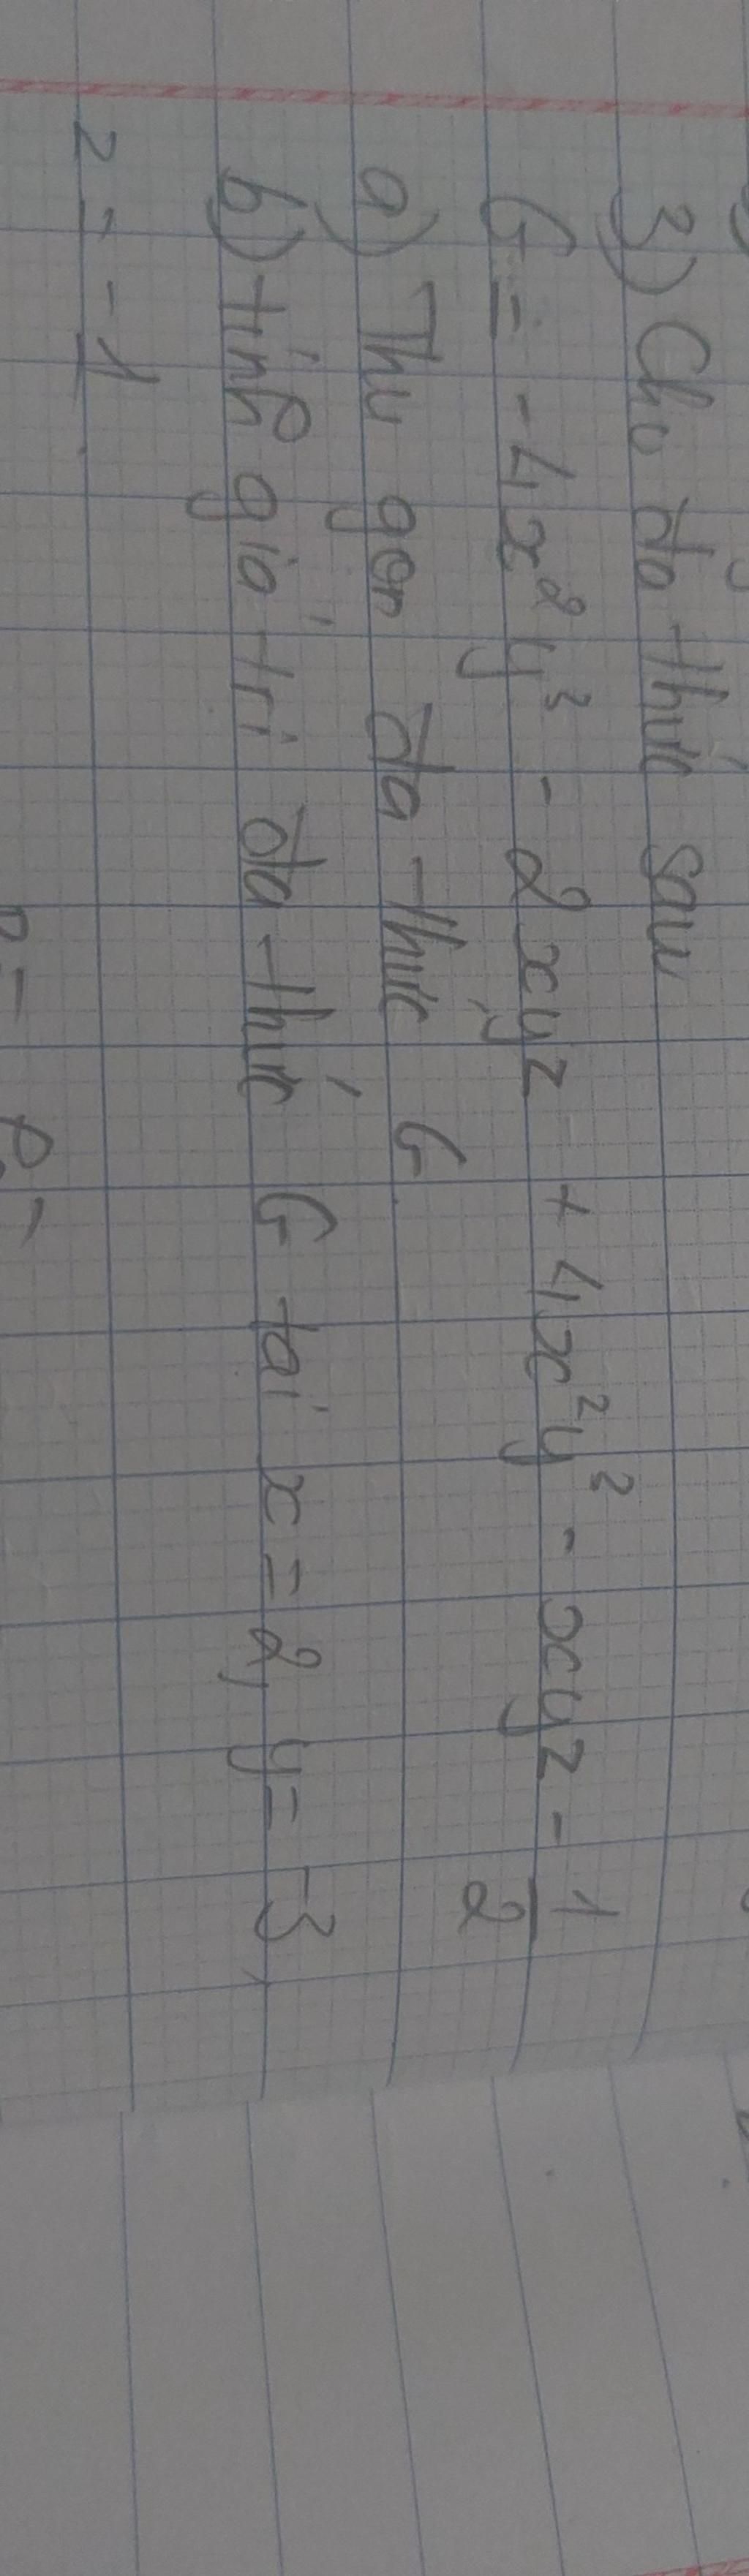 3) Cho đa thức sau
G = - 4x²y³ - 2xyz + 4x²y² - xyz - 1/2
a) Thu gọn đa thức G.
b) tính giá trị đa thức G tại x = 2, y = -3,
z = -1